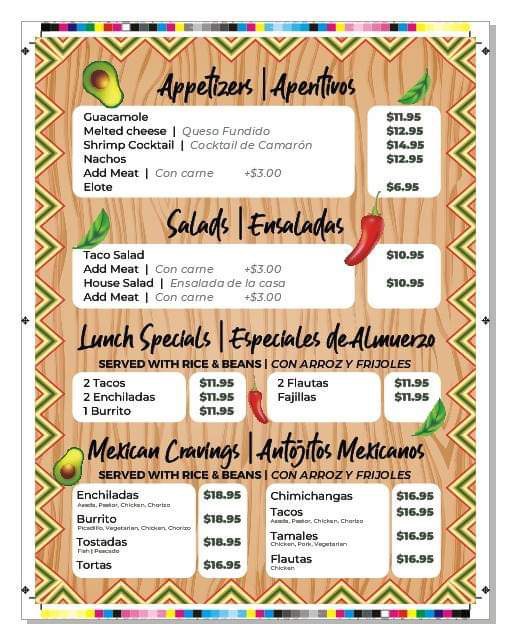 Appetizers | Aperitivos
Guacamole $11.95
Melted cheese | Queso Fundido $12.95
Shrimp Cocktail | Cocktail de Camarón $14.95
Nachos $12.95
Add Meat | Con carne +$3.00
Elote $6.95
Salads | Ensaladas
Taco Salad $10.95
Add Meat | Con carne +$3.00
House Salad | Ensalada de la casa $10.95
Add Meat | Con carne +$3.00
Lunch Specials | Especiales de Almuerzo
SERVED WITH RICE & BEANS | CON ARROZ Y FRIJOLES
2 Tacos $11.95
2 Enchiladas $11.95
1 Burrito $11.95
2 Flautas $11.95
Fajillas $11.95
Mexican Cravings | Antojitos Mexicanos
SERVED WITH RICE & BEANS | CON ARROZ Y FRIJOLES
Enchiladas $18.95
Asada, Pastor, Chicken, Chorizo
Burrito $18.95
Picadillo, Vegetarian, Chicken, Chorizo
Tostadas $18.95
Fish | Pescado
Tortas $16.95
Chimichangas $16.95
Tacos $16.95
Asada, Pastor, Chicken, Chorizo
Tamales $16.95
Chicken, Pork, Vegetarian
Flautas $16.95
Chicken